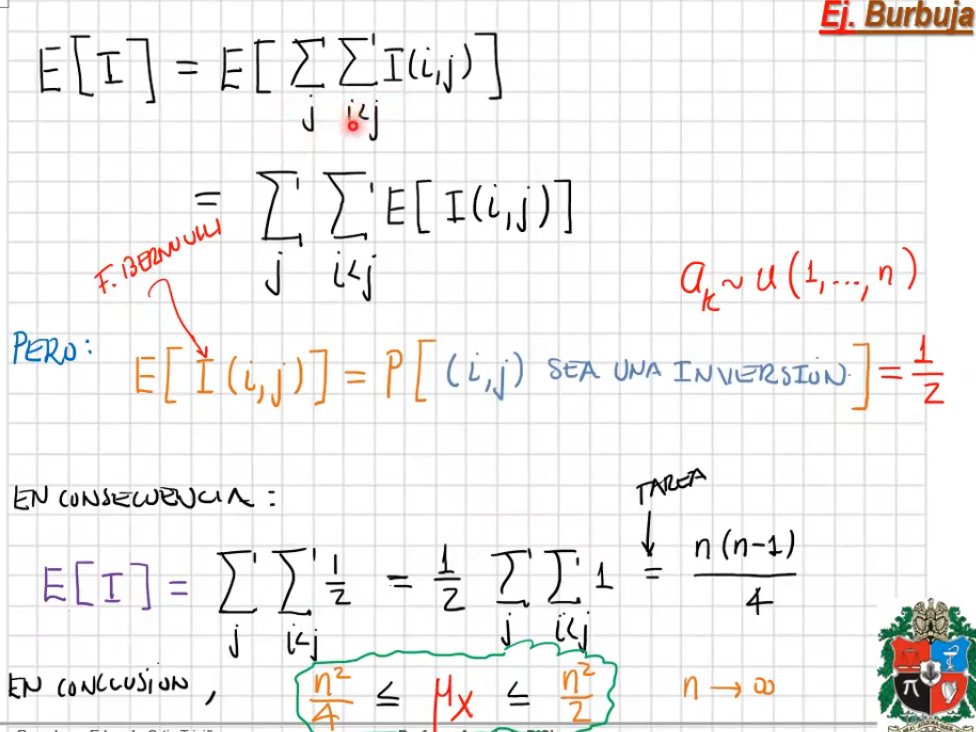 Ej. Burbuja
E[I] = E[∑_j ∑_{i<j} I(i,j)]
= ∑_j ∑_{i<j} E[I(i,j)]
F. BERNULLI
a_k ~ U(1,...,n)
PERO:
E[I(i,j)] = P[(i,j) SEA UNA INVERSIÓN] = 1/2
EN CONSECUENCIA:
TAREA
E[I] = ∑_j ∑_{i<j} 1/2 = 1/2 ∑_j ∑_{i<j} 1 = n(n-1)/4
EN CONCLUSIÓN, n²/4 ≤ μ_X ≤ n²/2 n → ∞